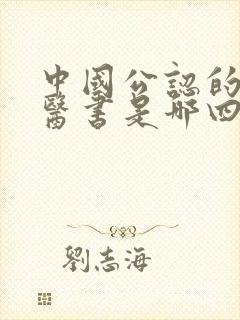 中國公認的
醫書是哪四
劉志海